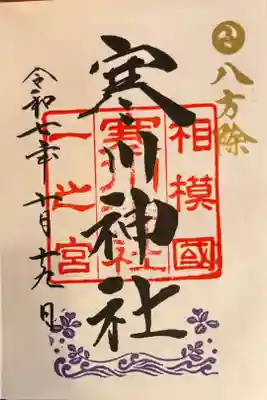 八方除
相模國
寒川神社
寒川神社
一之宮
令和七年十月十九日